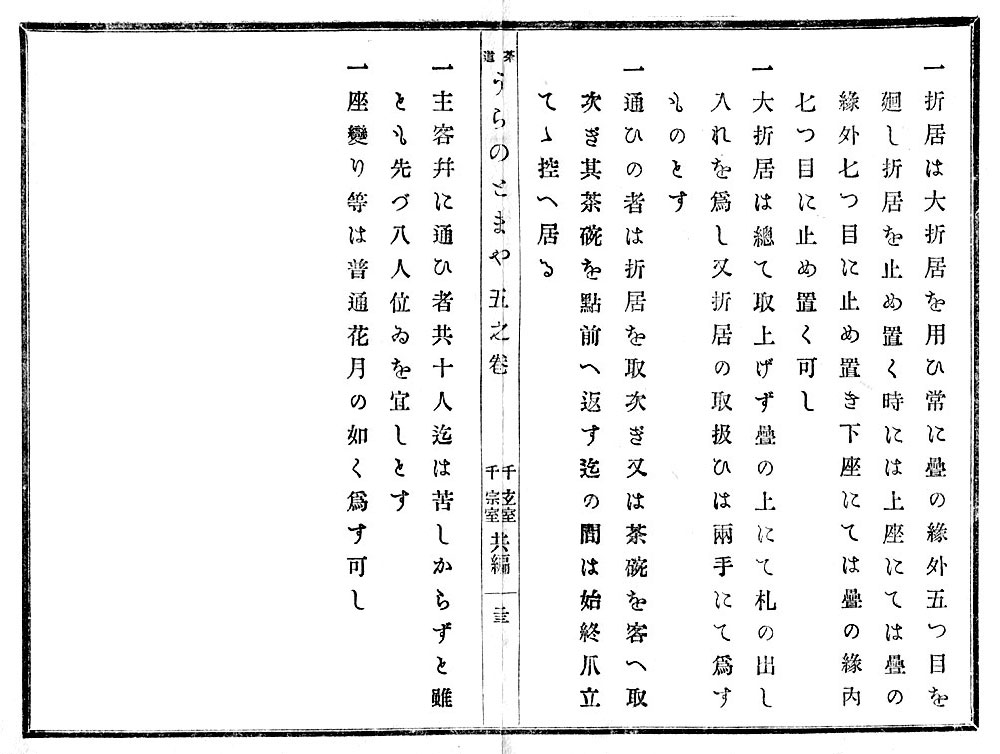 一折居は大折居を用ひ常に疊の緣外五つ目を
廻し折居を止め置く時には上座にては疊の
緣外七つ目に止め置き下座にては疊の緣內
七つ目に止め置く可し
一大折居は總て取上げず疊の上にて札の出し
入れを爲し又折居の取扱ひは兩手にて爲す
ものとす
一通ひの者は折居を取次ぎ又は茶碗を客へ取
次ぎ其茶碗を點前へ返す迄の間は始終爪立
てゝ控へ居る
茶道 うらのとまや 五之卷 千玄室 千宗室 共編
一主客幷に通ひ者共十人迄は苦しからずと雖
とも先づ八人位ゐを宜しとす
一座變り等は普通花月の如く爲す可し